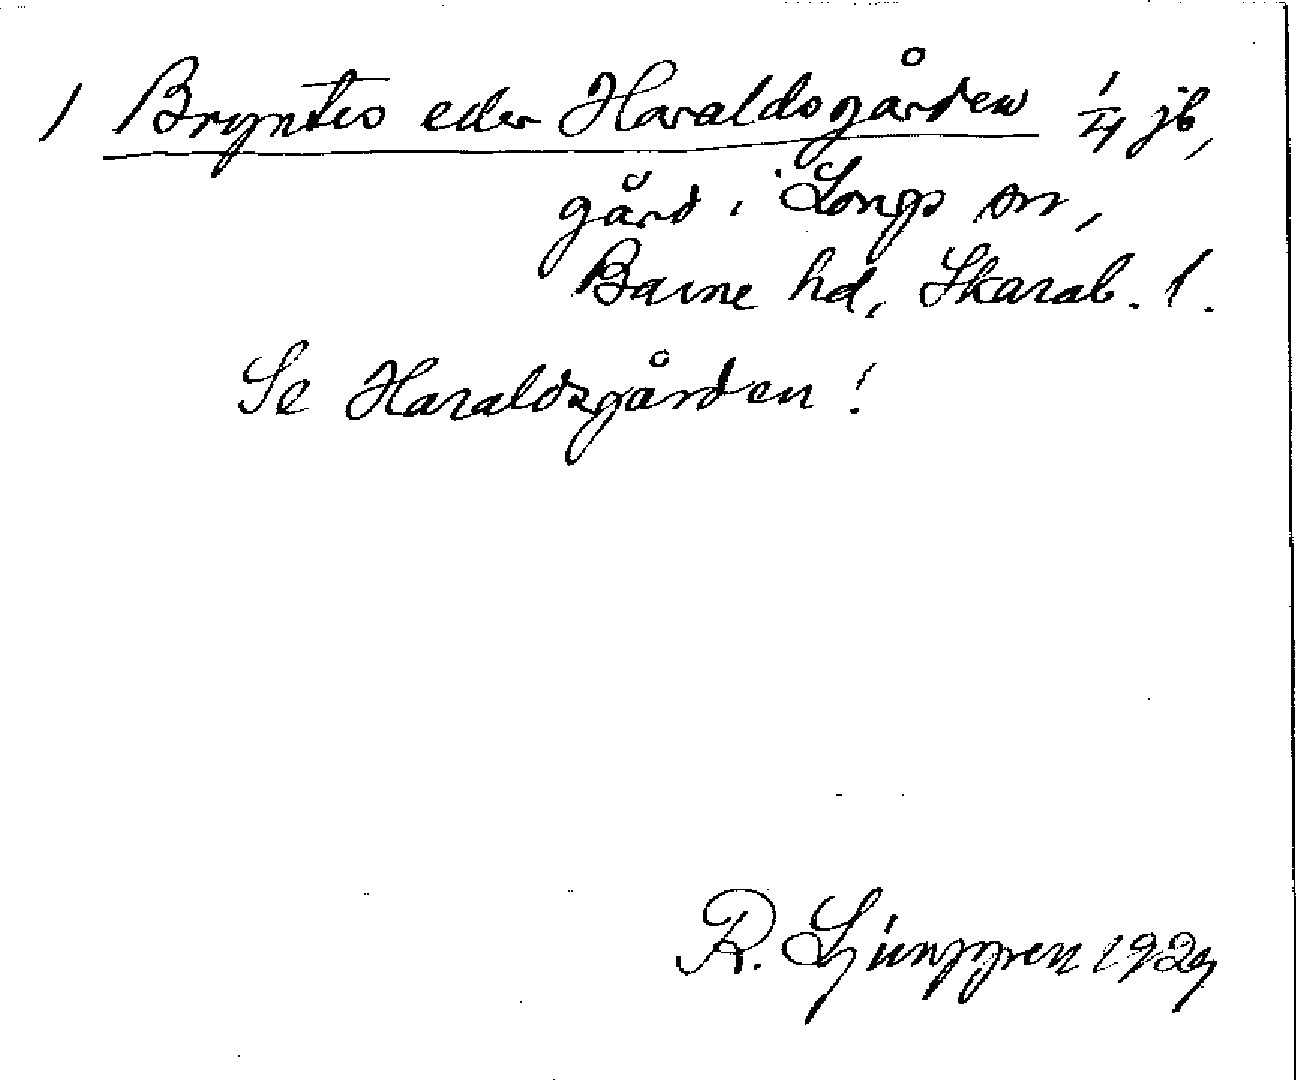 / Bryntes eller Haraldsgården 1/4 jb,
gård i Longs sn,
Barne hd, Skarab. l.
Se Haraldsgården!
R. Ljunggren 1929